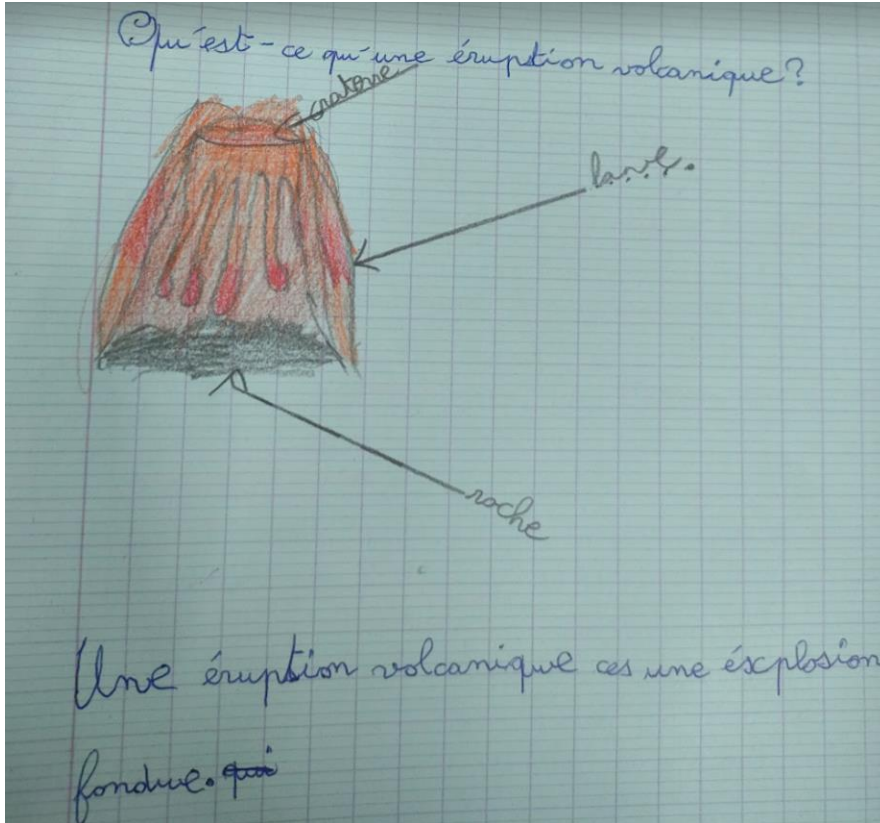 Qu'est-ce qu'une éruption volcanique?
craterre
lave.
roche
Une éruption volcanique ces une éxplosion
fondue. qui